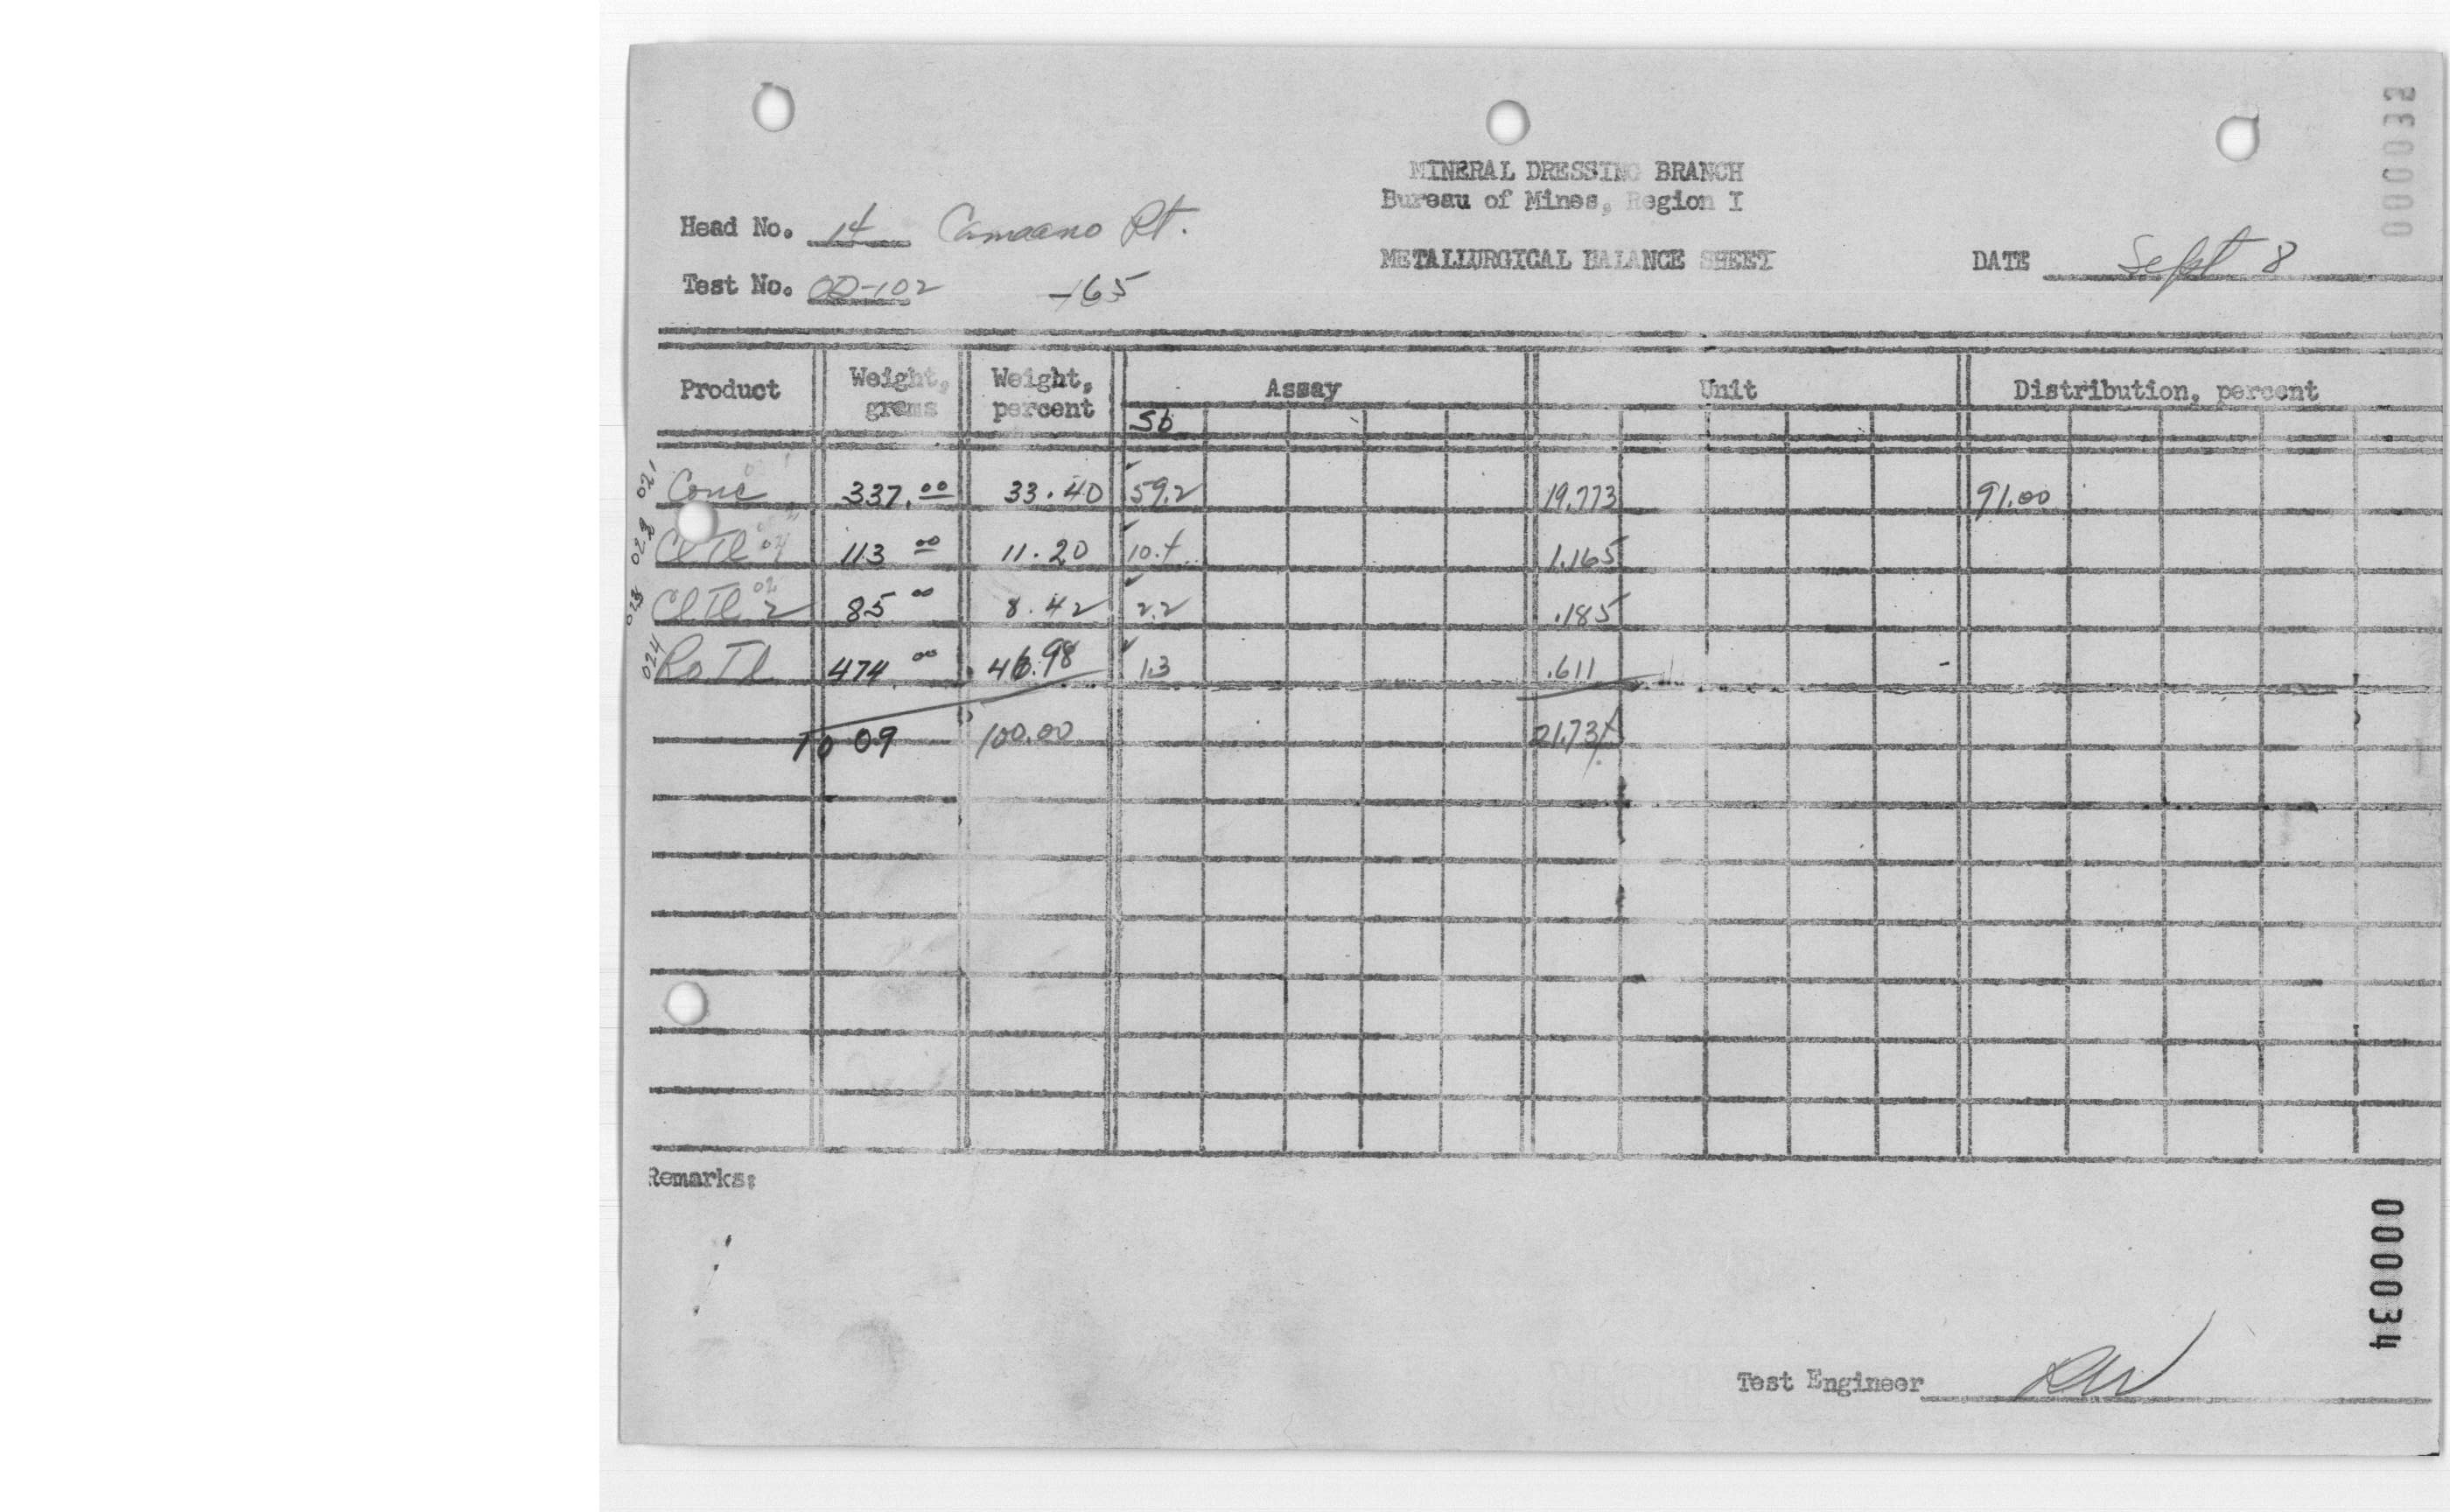 000032
MINERAL DRESSING BRANCH
Bureau of Mines, Region I
Head No. 14 Camaano Pt.
METALLURGICAL BALANCE SHEET
DATE Sept 8
Test No. OD-102 -65
Product Weight, grams Weight, percent Assay Unit Distribution, percent
Sb
021 Conc 337.00 33.40 59.2 19.773 91.00
022 Cl Tl 1 113 00 11.20 10.4 1.165
023 Cl Tl 2 85 00 8.42 2.2 .185
024 Ro Tl 474 00 46.98 1.3 .611
1009 100.00 21.734
Remarks:
000034
Test Engineer RW